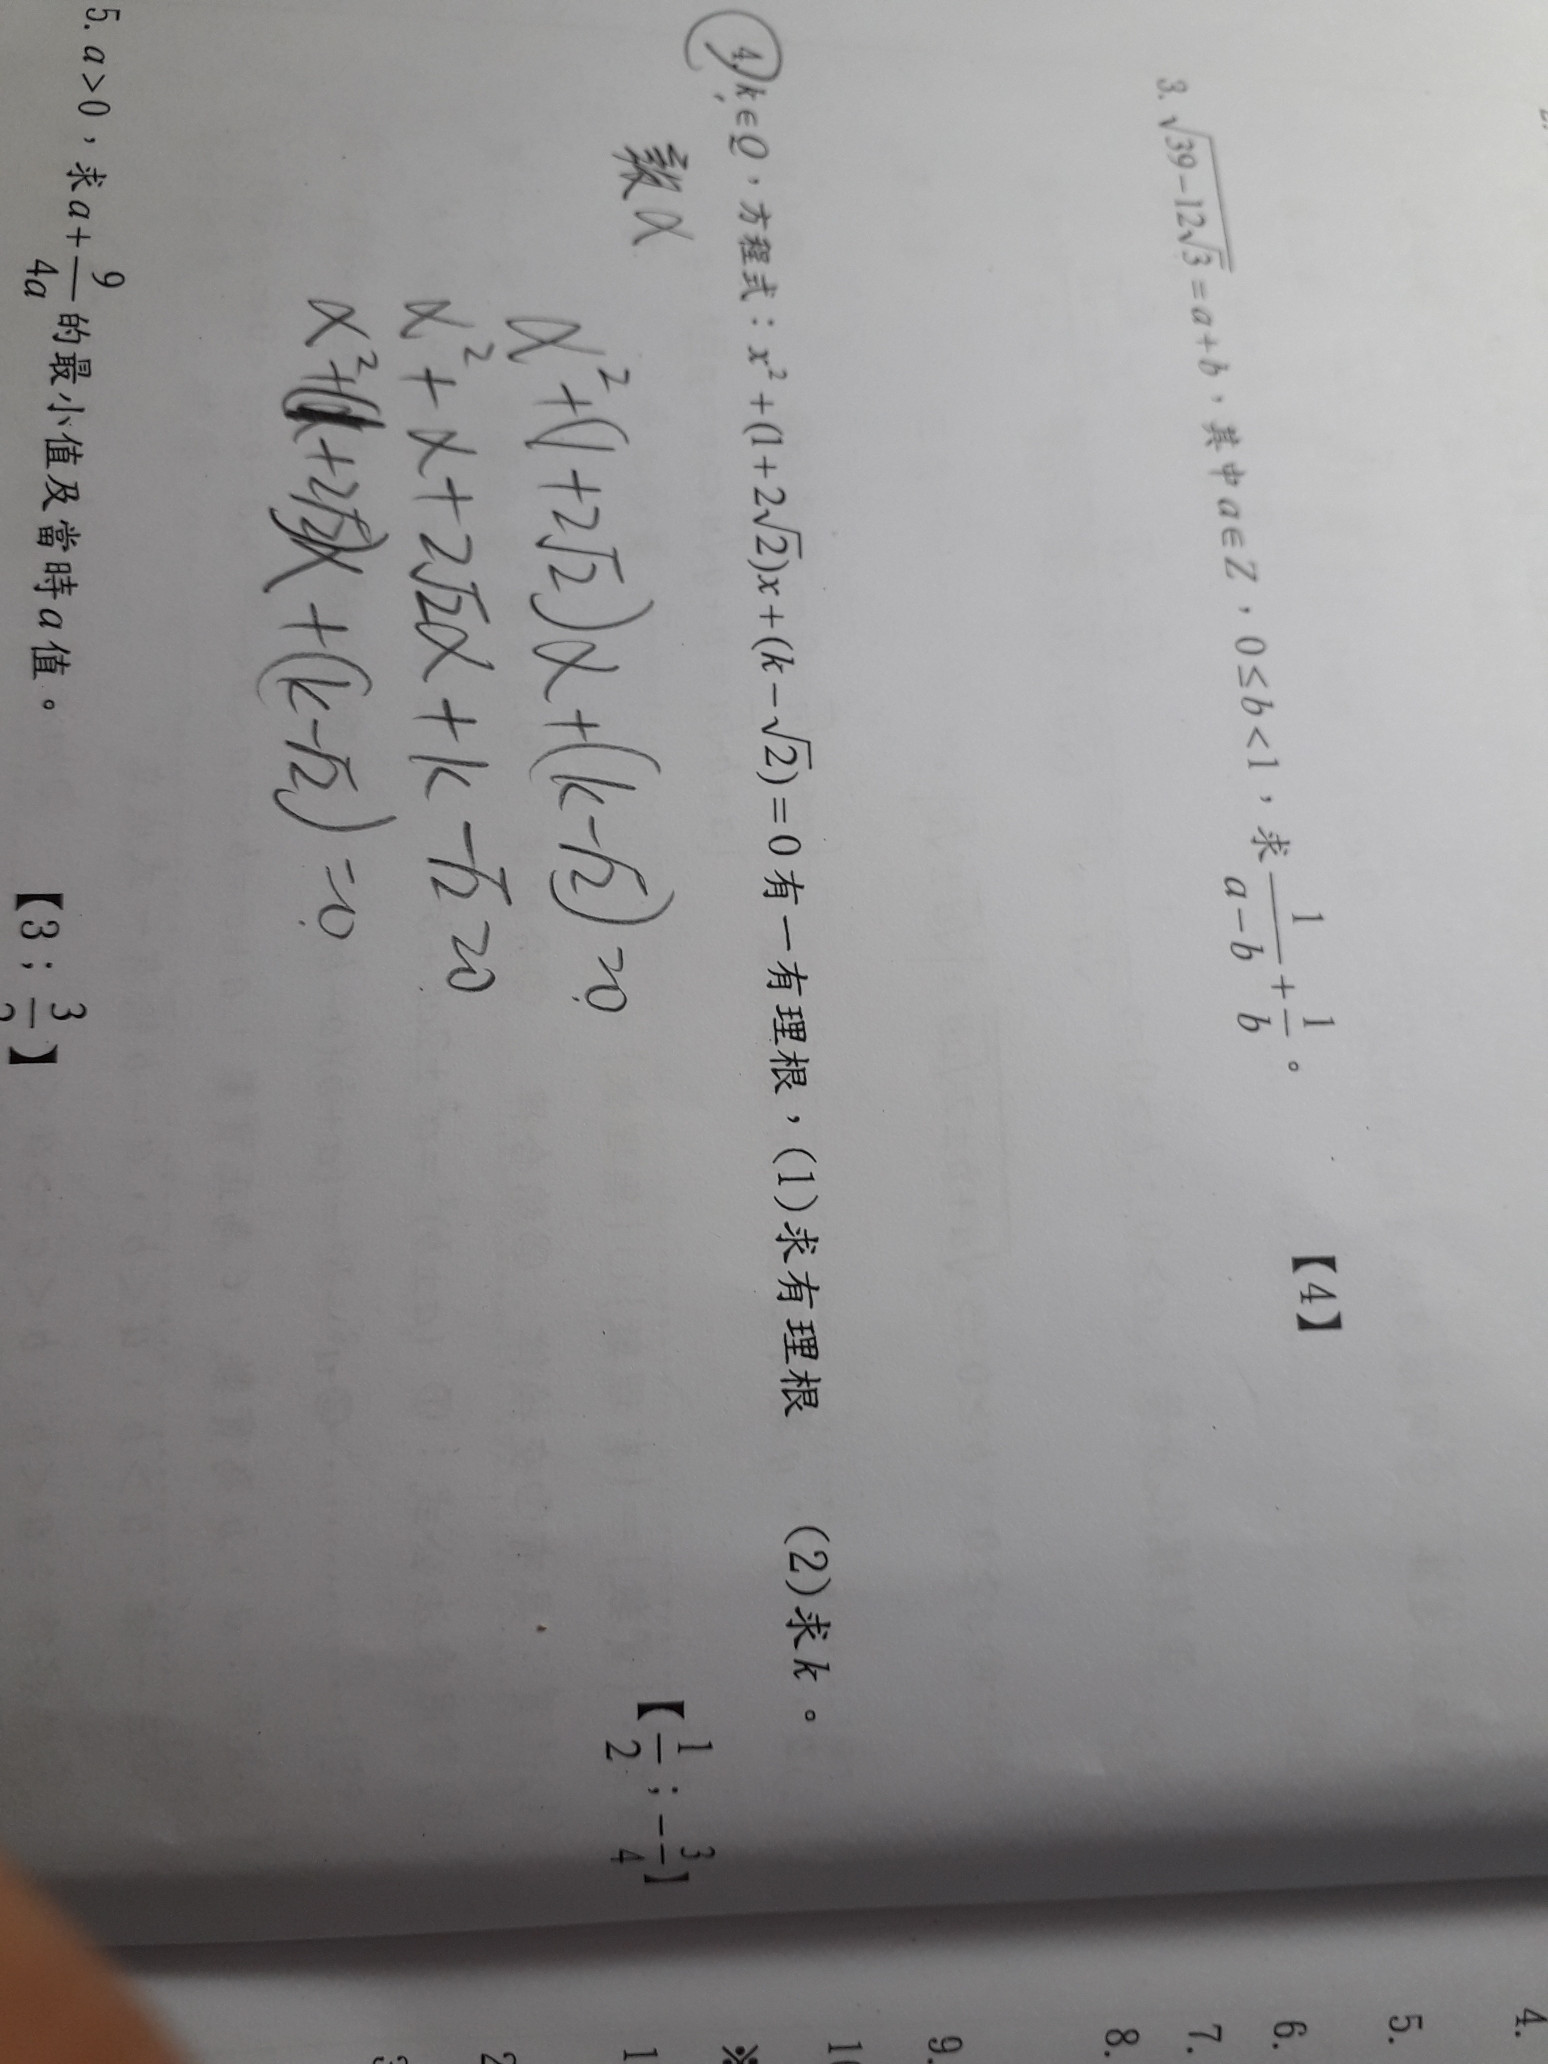 3. √(39-12√3)=a+b，其中a∈Z，0≤b<1，求1/(a-b)+1/b。
【4】
4. k∈Q，方程式：x²+(1+2√2)x+(k-√2)=0有一有理根，(1)求有理根 (2)求k。
【1/2；-3/4】
α
α²+(1+2√2)α+(k-√2)=0
α²+α+2√2α+k-√2=0
+(k-√2)=0
5. a>0，求a+9/(4a)的最小值及當時a值。
【3；3/2】
4.
5.
6.
7.
8.
9.
※
1
2
3